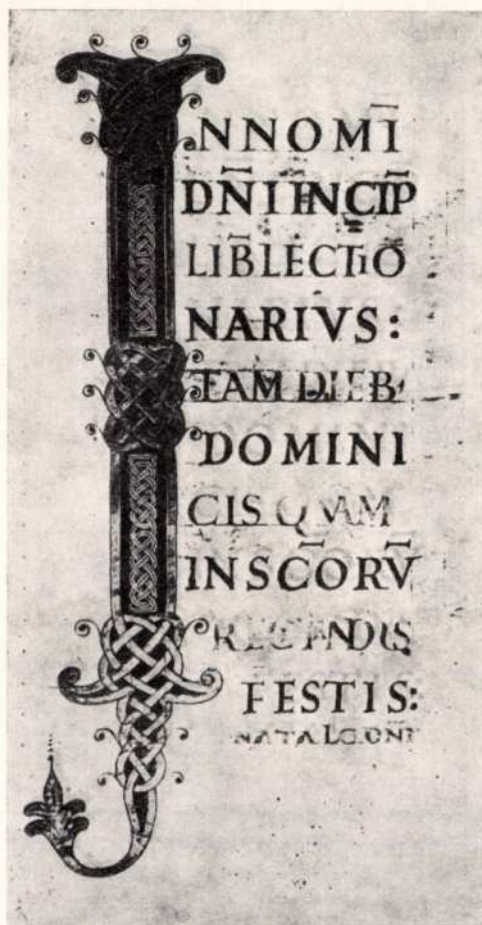 INNOMĪ
DN̄I INCIP̄
LIB̄ LECTIO
NARIVS:
TAM DIEB·
DOMINI
CIS QVAM
IN SC̄ORV̄
FESTIS: